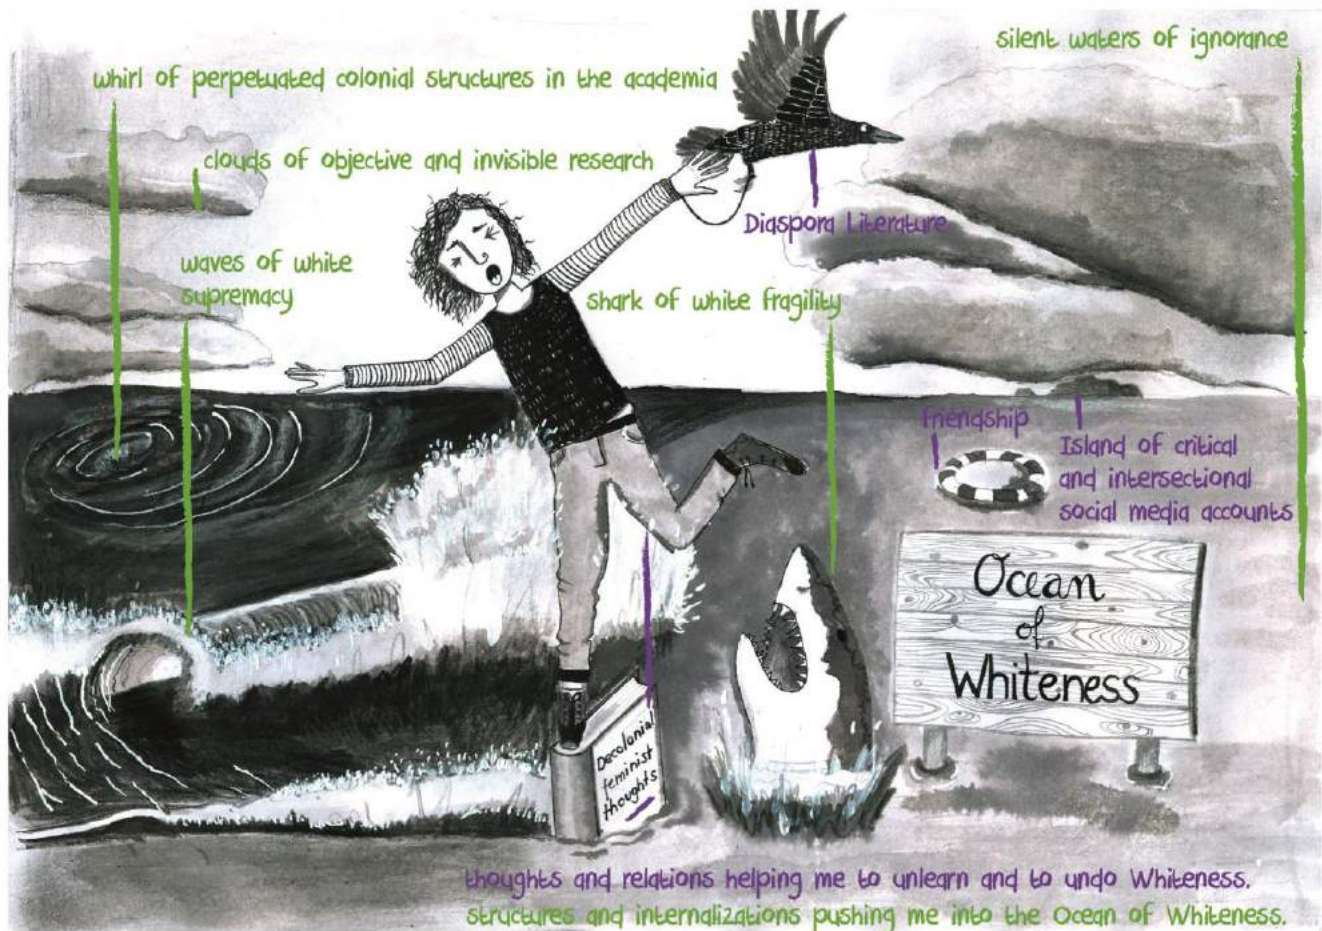 silent waters of ignorance
whirl of perpetuated colonial structures in the academia
clouds of objective and invisible research
Diaspora Literature
waves of white
supremacy
shark of white fragility
friendship
Island of critical
and intersectional
social media accounts
Ocean
of
Whiteness
Decolonial
feminist
thoughts
thoughts and relations helping me to unlearn and to undo Whiteness.
structures and internalizations pushing me into the Ocean of Whiteness.